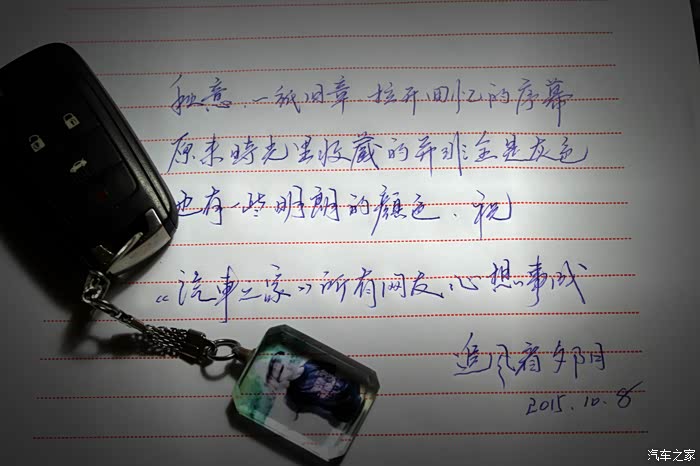 秋意,一纸旧章 拉开回忆的序幕
原来时光里收藏的并非全是灰色
也有一些明朗的颜色.祝
《汽车之家》所有网友,心想事成
追风看夕阳
2015.10.8
汽车之家